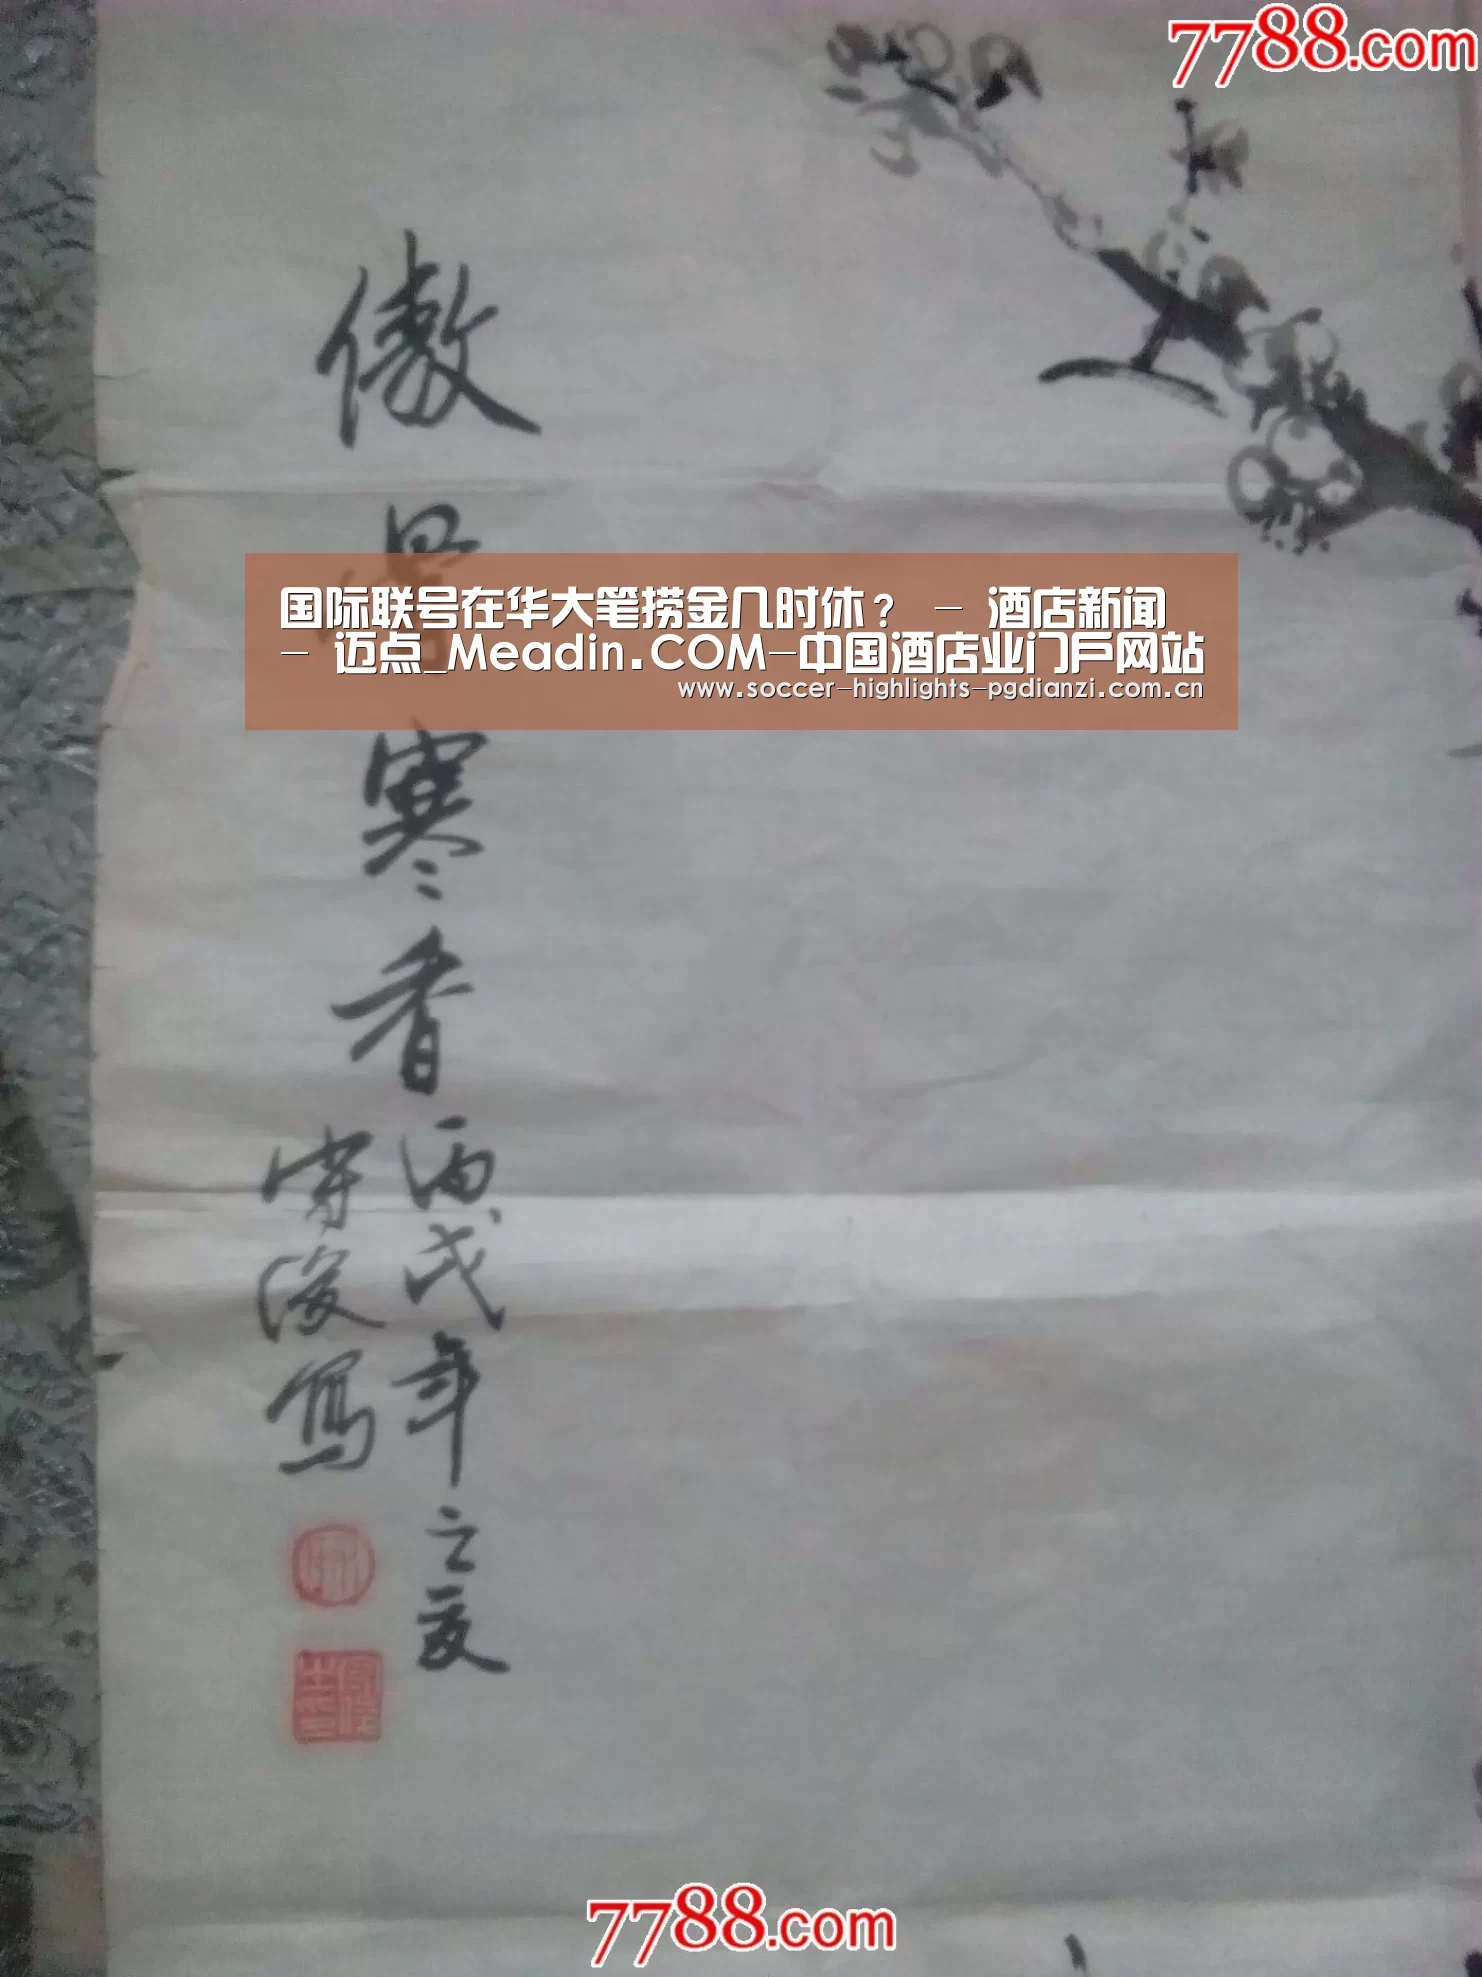 7788.com
傲
国际联号在华大笔捞金几时休？ - 酒店新闻
- 迈点_Meadin.COM-中国酒店业门户网站
www.soccer-highlights-pgdianzi.com.cn
寒香
丙戌年之夏
守俊写
7788.com